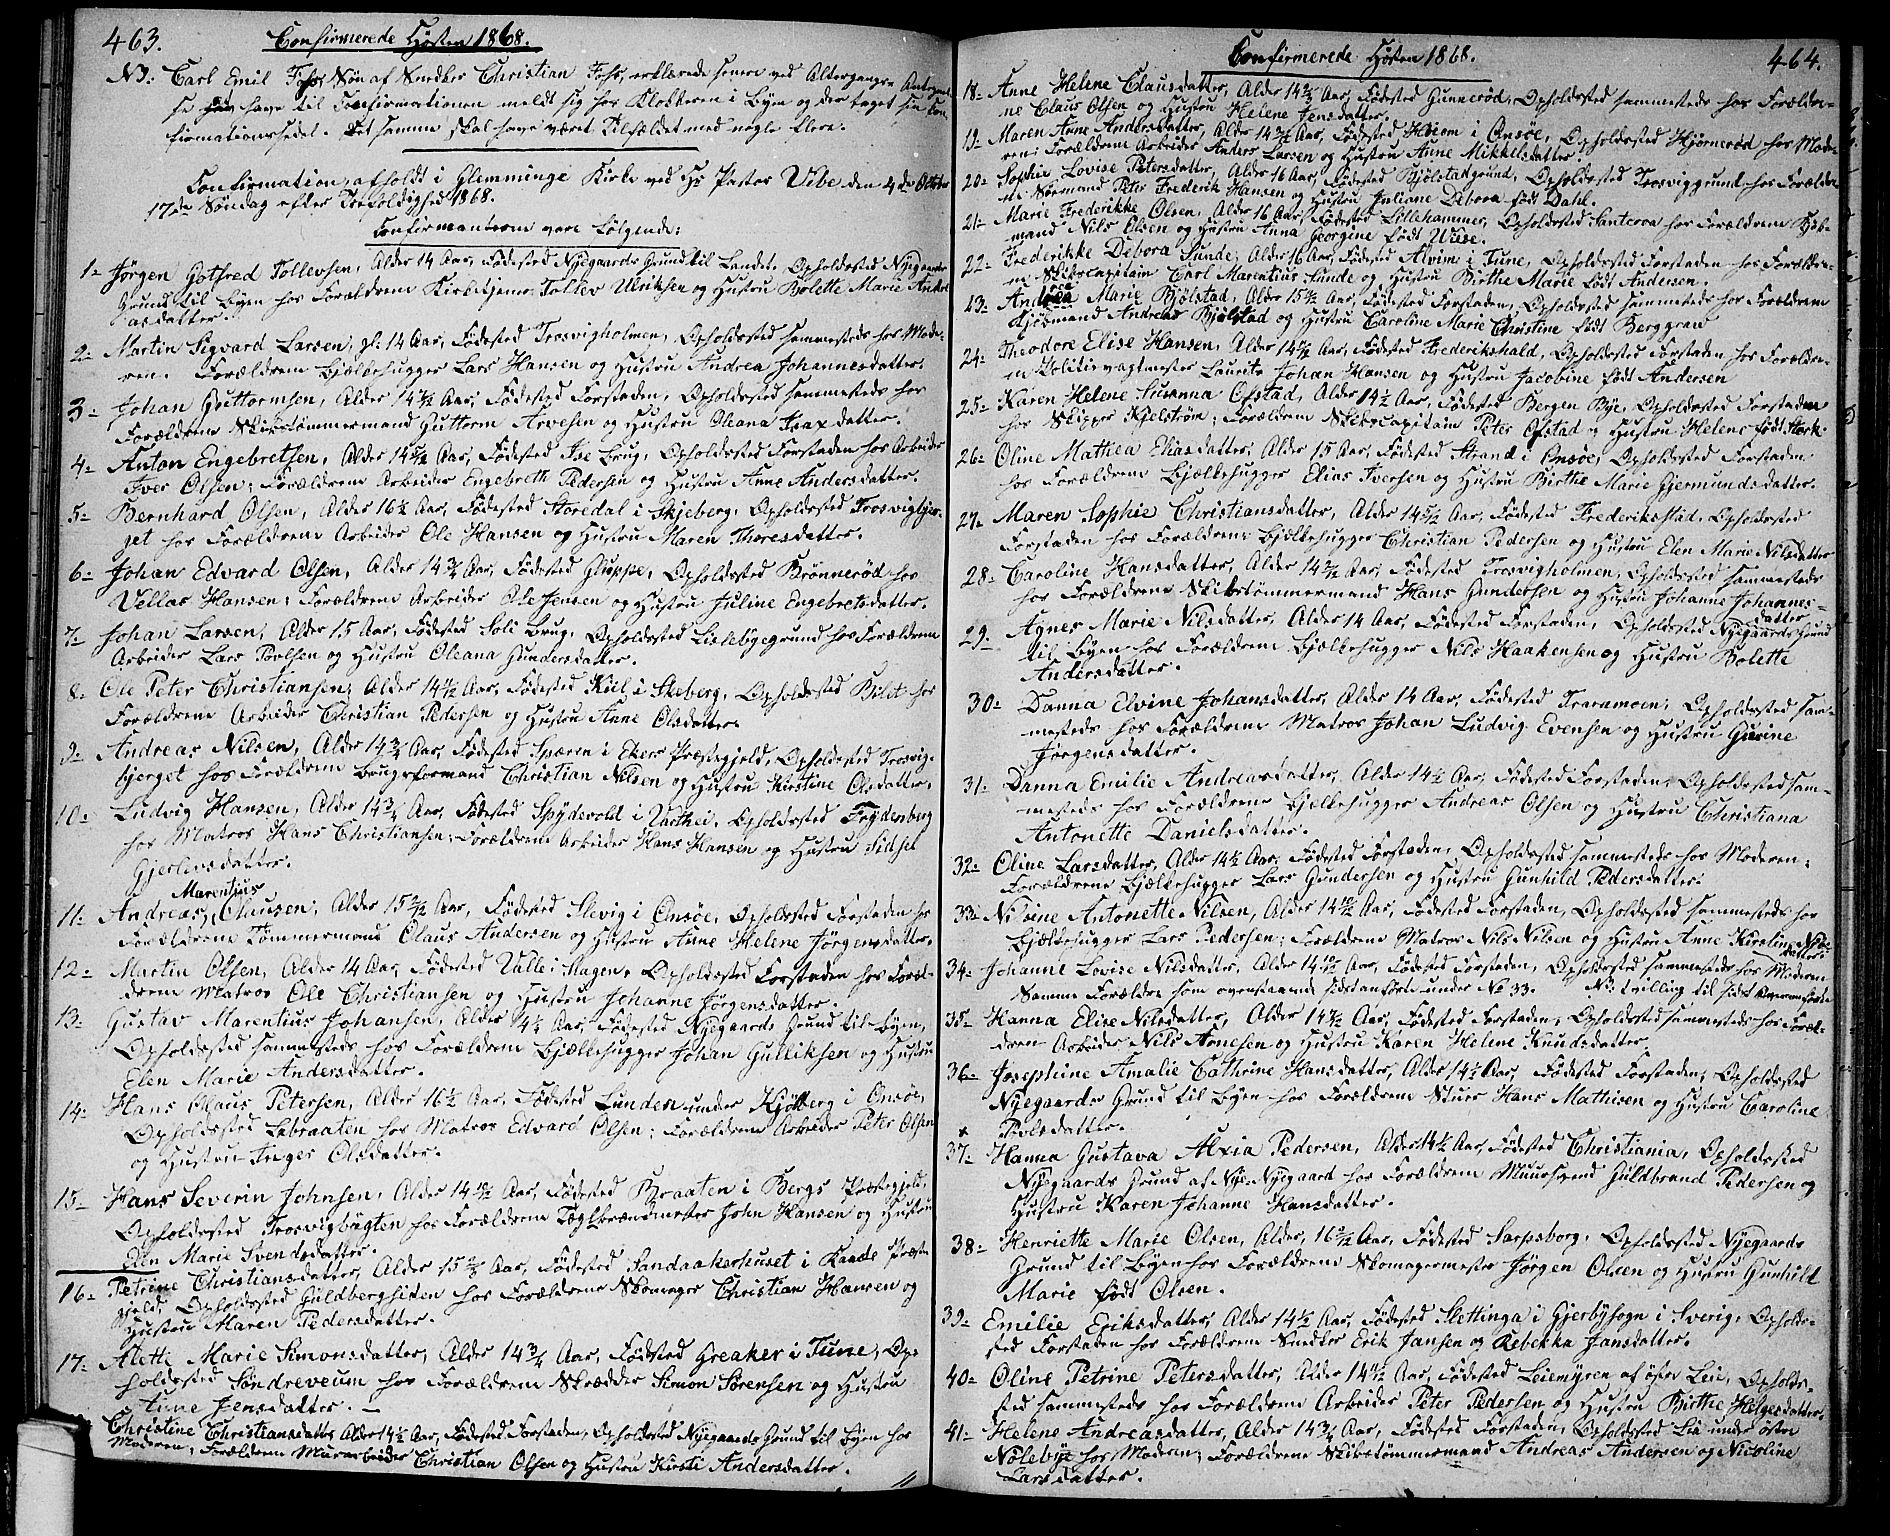 463.
Confirmerede Høsten 1868.
N3: Carl Emil Fohs, Søn af Snedker Christian Fohs, erklærede senere ved Altergangen
se have til Confirmationen meldt sig hos Klokkeren i Byen og der taget sin Con-
firmationsseddel. Det samme skal have været Tilfældet med nogle flere.
Confirmation afholdt i Glemminge Kirke ved Hr Pastor Vibe den 4de October
17de Søndag efter Trefoldighed 1868.
Confirmanterne vare følgende:
1- Jørgen Gotfred Tollevsen, Alder 14 Aar, Fødested Nyegaards Grund til Landet, Opholdssted Nyegaards
Grund til Byen hos Forældrene Kirketjener Tollev Ulriksen og Hustru Bolette Marie Andre-
asdatter.
2- Martin Sigvard Larsen, gl. 14 Aar, Fødested Trosvigholmen, Opholdssted sammesteds hos Mode-
ren. Forældrene Bjælkehugger Lars Hansen og Hustru Andrea Johannesdatter.
3- Johan Guttormsen, Alder 14 Aar, Fødested Forstaden, Opholdssted sammesteds hos
Forældrene Skibstømmermand Guttorm Arvesen og Hustru Oleana Isaxdatter.
4- Anton Engebretsen, Alder 14 5/12 Aar, Fødested Ise Brug, Opholdssted Forstaden hos Arbeider
Iver Olsen; Forældrene Arbeider Engebreth Pedersen og Hustru Anne Andersdatter.
5- Bernhard Olsen, Alder 16 1/2 Aar, Fødested Storedal i Skjeberg, Opholdssted Trosvigbjer-
get hos Forældrene Arbeider Ole Hansen og Hustru Maren Thoresdatter.
6- Johan Edvard Olsen, Alder 14 3/4 Aar, Fødested Gluppe, Opholdssted Brønnerød hos
Vellas Hansen; Forældrene Arbeider Ole Jensen og Hustru Juline Engebretsdatter.
7- Johan Larsen, Alder 15 Aar, Fødested Soli Brug, Opholdssted Lislebyegrund hos Forældrene
Arbeider Lars Povlsen og Hustru Oleana Gundersdatter.
8- Ole Peter Christiansen, Alder 14 1/2 Aar, Fødested Kiil i Skeberg, Opholdssted Bilet hos
Forældrene Arbeider Christian Pedersen og Hustru Anne Olsdatter.
9- Andreas Nilsen, Alder 14 3/4 Aar, Fødested Spæren i Ekers Præstegjeld, Opholdssted Trosvig-
bjerget hos Forældrene Brugsformand Christian Nilsen og Hustru Kirstine Olsdatter.
10- Ludvig Hansen, Alder 14 3/4 Aar, Fødested Spydevold i Varthei, Opholdssted Frydenberg
hos Matros Hans Christiansen; Forældrene Arbeider Hans Hansen og Hustru Sidsel
Gjerlivsdatter.
Marentius
11- Andreas, Olausen, Alder 15 2/12 Aar, Fødested Slevig i Onsøe, Opholdssted Forstaden hos
Forældrene Tømmermand Olaus Andersen og Hustru Anne Helene Jørgensdatter.
12- Martin Olsen, Alder 14 Aar, Fødested Valle i Hagen, Opholdssted Forstaden hos Foræl-
drene Matros Ole Christiansen og Hustru Johanne Jørgensdatter.
13- Gustav Marentius Johansen, Alder 14 1/2 Aar, Fødested Nyegaards Grund til Byen,
Opholdssted sammesteds hos Forældrene Bjælkehugger Johan Gulliksen og Hustru
Elen Marie Andersdatter.
14- Hans Olaus Petersen, Alder 16 1/2 Aar, Fødested Lunden under Kjølberg i Onsøe,
Opholdssted Labraaten hos Matros Edvard Olsen; Forældrene Arbeider Peter Olsen
og Hustru Inger Olsdatter.
15- Hans Severin Johnsen, Alder 14 10/12 Aar, Fødested Braaten i Bergs Præstegjeld,
Opholdssted Trosvigbøgten hos Forældrene Teglbrændmester John Hansen og Hustru
Elen Marie Svendsdatter.
16- Petrine Christiansdatter, Alder 15 Aar, Fødested Sandaakerhuset i Raade Præste-
gjeld, Opholdssted Guldbergsiden hos Forældrene Skomager Christian Hansen og
Hustru Maren Pedersdatter.
17- Alette Marie Simonsdatter, Alder 14 3/4 Aar, Fødested Greaker i Tune, Op-
holdssted Søndreveum hos Forældrene Skrædder Simon Sørensen og Hustru
Anne Jensdatter. —
Christine Christiansdatter Alder 14 1/2 Aar, Fødested Forstaden, Opholdssted Nyegaards Grund til Byen hos
Moderen; Forældrene Murarbeider Christian Olsen og Hustru Kirsti Andersdatter.
Confirmerede Høsten 1868.
464.
18- Anne Helene Clausdatter, Alder 14 Aar, Fødested Gunnerød, Opholdssted sammesteds hos Forældre-
ne Claus Olsen og Hustru Helene Jensdatter.
19- Maren Anne Andersdatter, Alder 14 Aar, Fødested Heiem i Onsøe, Opholdssted Hjørnerød hos Mode-
ren; Forældrene Arbeider Anders Larsen og Hustru Anne Mikkelsdatter.
20- Sophie Lovise Petersdatter, Alder 16 Aar, Fødested Bjølstadgrund, Opholdssted Trosviggrund hos Forældre-
ne Sømand Peter Frederik Hansen og Hustru Juliane Debora født Dahl.
21- Marie Frederikke Olsen, Alder 16 Aar, Fødested Lillehammer, Opholdssted Santeora hos Forældrene Kjøb-
mand Nils Olsen og Hustru Anna Georgine født Wiese.
22- Frederikke Debora Sunde, Alder 16 Aar, Fødested Alvim i Tune, Opholdssted Forstaden hos Forældre-
ne Skibscapitain Carl Marentius Sunde og Hustru Birthe Marie født Andersen.
23- Andrea Marie Bjølstad, Alder 15 Aar, Fødested Forstaden, Opholdssted sammesteds hos Forældrene
Kjøbmand Andreas Bjølstad og Hustru Caroline Marie Christine født Berggran
24- Theodore Elise Hansen, Alder 14 Aar, Fødested Frederikshald, Opholdssted Forstaden hos Forældre-
ne Politivagtmester Laurits Johan Hansen og Hustru Jacobine født Andersen
25- Karen Helene Susanna Ofstad, Alder 14 1/2 Aar, Fødested Bergen Bye, Opholdssted Forstaden
hos Skipper Kjelstrøm; Forældrene Skibscapitain Peter Ofstad og Hustru Helene født Stork.
26- Oline Mathea Eliasdatter, Alder 15 Aar, Fødested Strand i Onsøe, Opholdssted Forstaden
hos Forældrene Bjælkehugger Elias Iversen og Hustru Birthe Marie Gjermundsdatter.
27- Maren Sophie Christiansdatter, Alder 14 5/12 Aar, Fødested Frederiksstad, Opholdssted
Forstaden hos Forældrene Bjælkehugger Christian Pedersen og Hustru Elen Marie Nilsdatter
28- Caroline Hansdatter, Alder 14 Aar, Fødested Trosvigholmen, Opholdssted sammesteds
hos Forældrene Skibstømmermand Hans Gundersen og Hustru Johanne Johannes-
datter
29- Agnes Marie Nilsdatter, Alder 14 Aar, Fødested Forstaden, Opholdssted Nyegaards Grund
til Byen hos Forældrene Bjælkehugger Nils Haakensen og Hustru Bolette
Andersdatter.
30- Danna Elvine Johansdatter, Alder 14 Aar, Fødested Traramoen, Opholdssted sam-
mesteds hos Forældrene Matros Johan Ludvig Evensen og Hustru Gurine
Jørgensdatter.
31- Danna Emilie Andreasdatter, Alder 14 1/2 Aar, Fødested Forstaden, Opholdssted sam-
mesteds hos Forældrene Bjælkehugger Andreas Olsen og Hustru Christiana
Antonette Danielsdatter.
32- Oline Larsdatter, Alder 14 1/2 Aar, Fødested Forstaden, Opholdssted sammesteds hos Moderen;
Forældrene Bjælkehugger Lars Gundersen og Hustru Gunhild Pedersdatter.
33- Nilsine Antonette Nilsen, Alder 14 10/12 Aar, Fødested Forstaden, Opholdssted sammesteds hos
Bjælkehugger Lars Pedersen; Forældrene Matros Nils Nilsen og Hustru Anne Kirstine Niels-
datter.
34- Johanne Lovise Nilsdatter, Alder 14 10/12 Aar, Fødested Forstaden, Opholdssted sammesteds hos Moderen
Samme Forældre som ovenstaaende sidstanførte under No 33. NB. tvilling til sidst
35- Hanna Elise Nilsdatter, Alder 14 Aar, Fødested Forstaden, Opholdssted sammesteds hos Foræl-
drene Arbeider Nils Arnesen og Hustru Karen Helene Knudsdatter.
36- Josephine Amalie Cathrine Hansdatter, Alder 14 1/2 Aar, Fødested Forstaden, Opholdssted
Nyegaards Grund til Byen hos Forældrene Stuer Hans Mathisen og Hustru Caroline
Povlsdatter.
x
37- Hanna Gustava Alxia Pedersen, Alder 14 1/2 Aar, Fødested Christiania, Opholdssted
Nyegaards Grund af Nye Nyegaard hos Forældrene Muursvend Guldbrand Pedersen og
Hustru Karen Johanne Hansdatter.
38- Henriette Marie Olsen, Alder, 16 Aar, Fødested Sarpsborg, Opholdssted Nyegaards
Grund til Byen hos Forældrene Skomagermester Jørgen Olsen og Hustru Gunhilt
Marie født Olsen.
39- Emilie Eriksdatter, Alder 14 1/2 Aar, Fødested Slettinga i Gjerbysogn i Sverig, Opholds-
sted Forstaden hos Forældrene Snedker Erik Jansen og Rebekka Jansdatter.
40- Oline Petrine Petersdatter, Alder 14 11/12 Aar, Fødested Leiemyren af østre Leie, Opholds-
sted sammesteds hos Forældrene Arbeider Peter Pedersen og Hustru Birthe Helgesdatter.
41- Helene Andreasdatter, Alder 14 3/4 Aar, Fødested Forstaden, Opholdssted Lia under østre
Nølebye hos Moderen; Forældrene Skibstømmermand Andreas Andersen og Nicoline
Larsdatter.